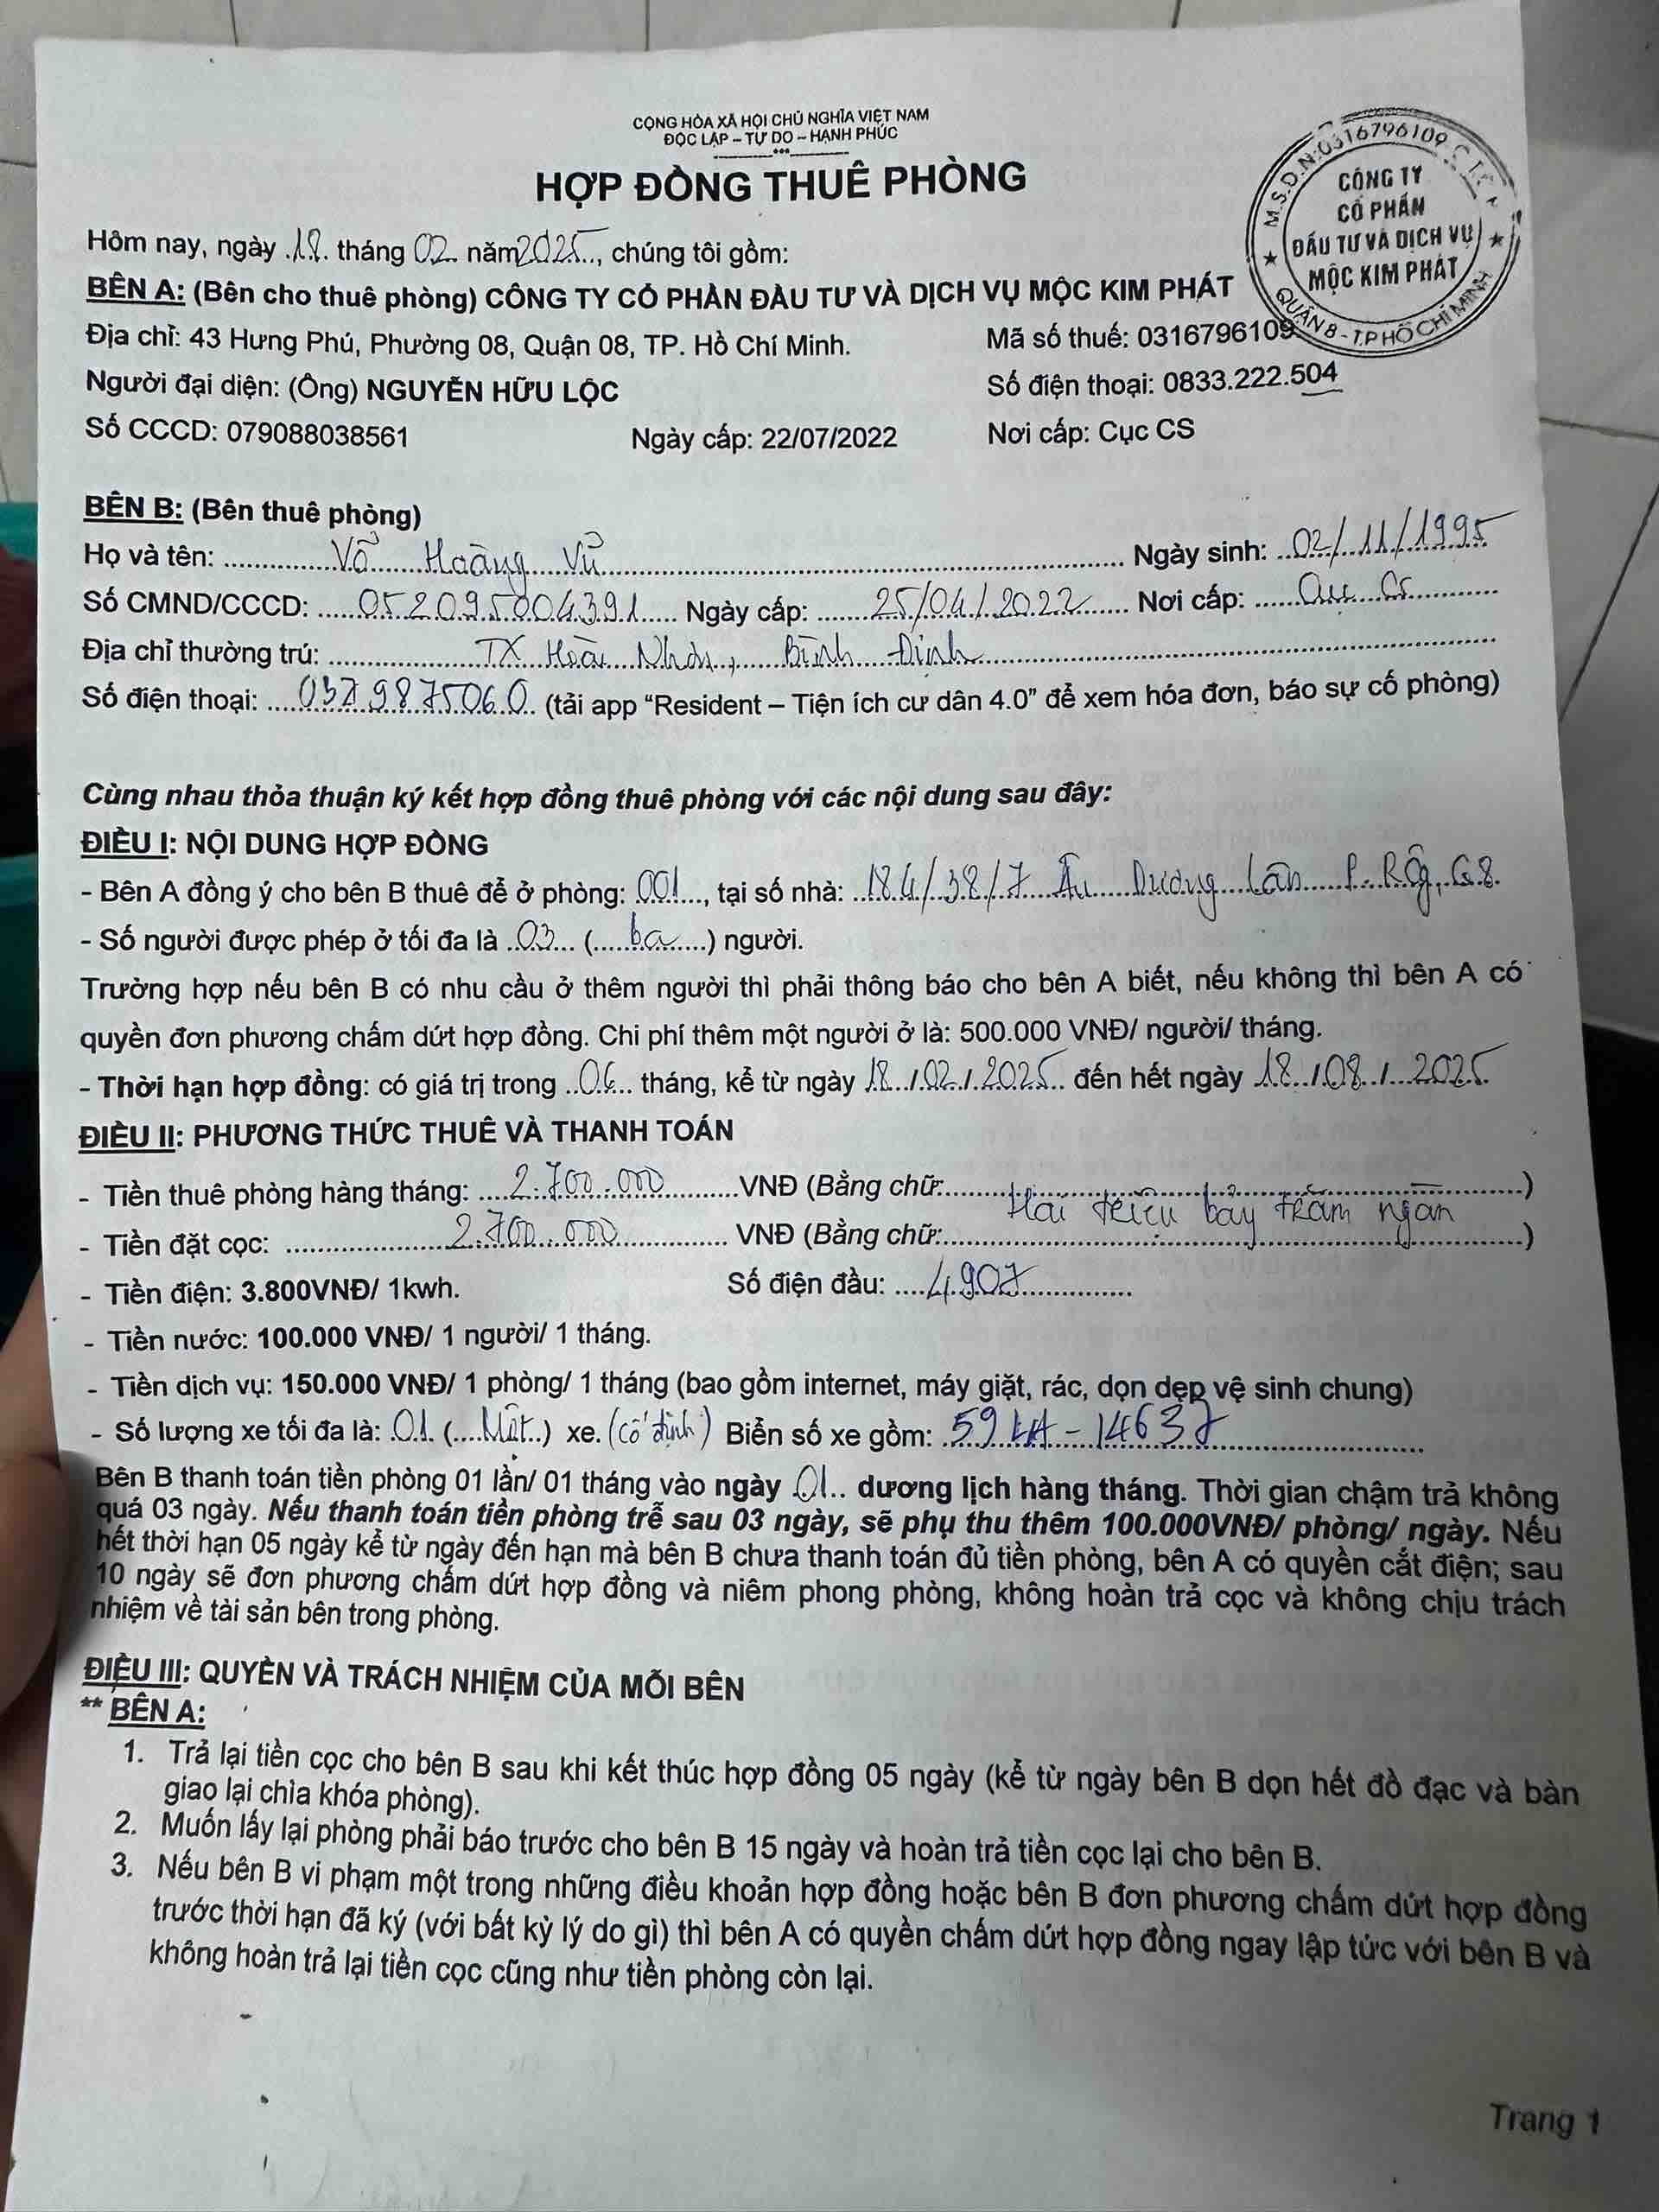 CỘNG HÒA XÃ HỘI CHỦ NGHĨA VIỆT NAM
ĐỘC LẬP – TỰ DO – HẠNH PHÚC
HỢP ĐỒNG THUÊ PHÒNG
M.S.D.N:0316796109
CÔNG TY
CỔ PHẦN
ĐẦU TƯ VÀ DỊCH VỤ
MỘC KIM PHÁT
QUẬN 8 - T.P HỒ CHÍ MINH
Hôm nay, ngày 18 tháng 02 năm 2025, chúng tôi gồm:
BÊN A: (Bên cho thuê phòng) CÔNG TY CỔ PHẦN ĐẦU TƯ VÀ DỊCH VỤ MỘC KIM PHÁT
Địa chỉ: 43 Hưng Phú, Phường 08, Quận 08, TP. Hồ Chí Minh. Mã số thuế: 0316796109
Người đại diện: (Ông) NGUYỄN HỮU LỘC Số điện thoại: 0833.222.504
Số CCCD: 079088038561 Ngày cấp: 22/07/2022 Nơi cấp: Cục CS
BÊN B: (Bên thuê phòng)
Họ và tên: Võ Hoàng Vũ Ngày sinh: 02/11/1995
Số CMND/CCCD: 052095004391 Ngày cấp: 25/04/2022 Nơi cấp: Cục CS
Địa chỉ thường trú: TX Hoài Nhơn, Bình Định
Số điện thoại: 0379875060 (tải app “Resident – Tiện ích cư dân 4.0” để xem hóa đơn, báo sự cố phòng)
Cùng nhau thỏa thuận ký kết hợp đồng thuê phòng với các nội dung sau đây:
ĐIỀU I: NỘI DUNG HỢP ĐỒNG
- Bên A đồng ý cho bên B thuê để ở phòng: 001, tại số nhà: 184/38/7 Âu Dương Lân P. RÔg, Q8.
- Số người được phép ở tối đa là 03 (ba) người.
Trường hợp nếu bên B có nhu cầu ở thêm người thì phải thông báo cho bên A biết, nếu không thì bên A có
quyền đơn phương chấm dứt hợp đồng. Chi phí thêm một người ở là: 500.000 VNĐ/ người/ tháng.
- Thời hạn hợp đồng: có giá trị trong 06 tháng, kể từ ngày 18/02/2025 đến hết ngày 18/08/2025
ĐIỀU II: PHƯƠNG THỨC THUÊ VÀ THANH TOÁN
- Tiền thuê phòng hàng tháng: 2.700.000 VNĐ (Bằng chữ: Hai triệu bảy trăm ngàn)
- Tiền đặt cọc: 2.700.000 VNĐ (Bằng chữ: )
- Tiền điện: 3.800VNĐ/ 1kwh. Số điện đầu: 4907
- Tiền nước: 100.000 VNĐ/ 1 người/ 1 tháng.
- Tiền dịch vụ: 150.000 VNĐ/ 1 phòng/ 1 tháng (bao gồm internet, máy giặt, rác, dọn dẹp vệ sinh chung)
- Số lượng xe tối đa là: 01 (Một) xe. (cố định) Biển số xe gồm: 59 - 14637
Bên B thanh toán tiền phòng 01 lần/ 01 tháng vào ngày 01 dương lịch hàng tháng. Thời gian chậm trả không
quá 03 ngày. Nếu thanh toán tiền phòng trễ sau 03 ngày, sẽ phụ thu thêm 100.000VNĐ/ phòng/ ngày. Nếu
hết thời hạn 05 ngày kể từ ngày đến hạn mà bên B chưa thanh toán đủ tiền phòng, bên A có quyền cắt điện; sau
10 ngày sẽ đơn phương chấm dứt hợp đồng và niêm phong phòng, không hoàn trả cọc và không chịu trách
nhiệm về tài sản bên trong phòng.
ĐIỀU III: QUYỀN VÀ TRÁCH NHIỆM CỦA MỖI BÊN
** BÊN A:
1. Trả lại tiền cọc cho bên B sau khi kết thúc hợp đồng 05 ngày (kể từ ngày bên B dọn hết đồ đạc và bàn
giao lại chìa khóa phòng).
2. Muốn lấy lại phòng phải báo trước cho bên B 15 ngày và hoàn trả tiền cọc lại cho bên B.
3. Nếu bên B vi phạm một trong những điều khoản hợp đồng hoặc bên B đơn phương chấm dứt hợp đồng
trước thời hạn đã ký (với bất kỳ lý do gì) thì bên A có quyền chấm dứt hợp đồng ngay lập tức với bên B và
không hoàn trả lại tiền cọc cũng như tiền phòng còn lại.
Trang 1